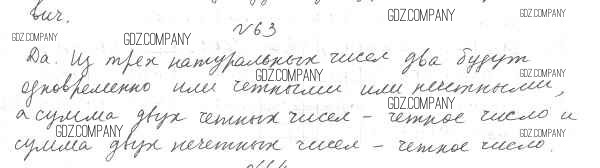 вич.
GDZ.COMPANY
№63
GDZ.COMPANY
GDZ.COMPANY
GDZ.COMPANY
Да. Из трех натуральных чисел два будут
GDZ.COMPANY
GDZ.COMPANY
одновременно или четными или нечетными,
GDZ.COMPANY
а сумма двух четных чисел - четное число и
GDZ.COMPANY
GDZ.COMPANY
сумма двух нечетных чисел - четное число.